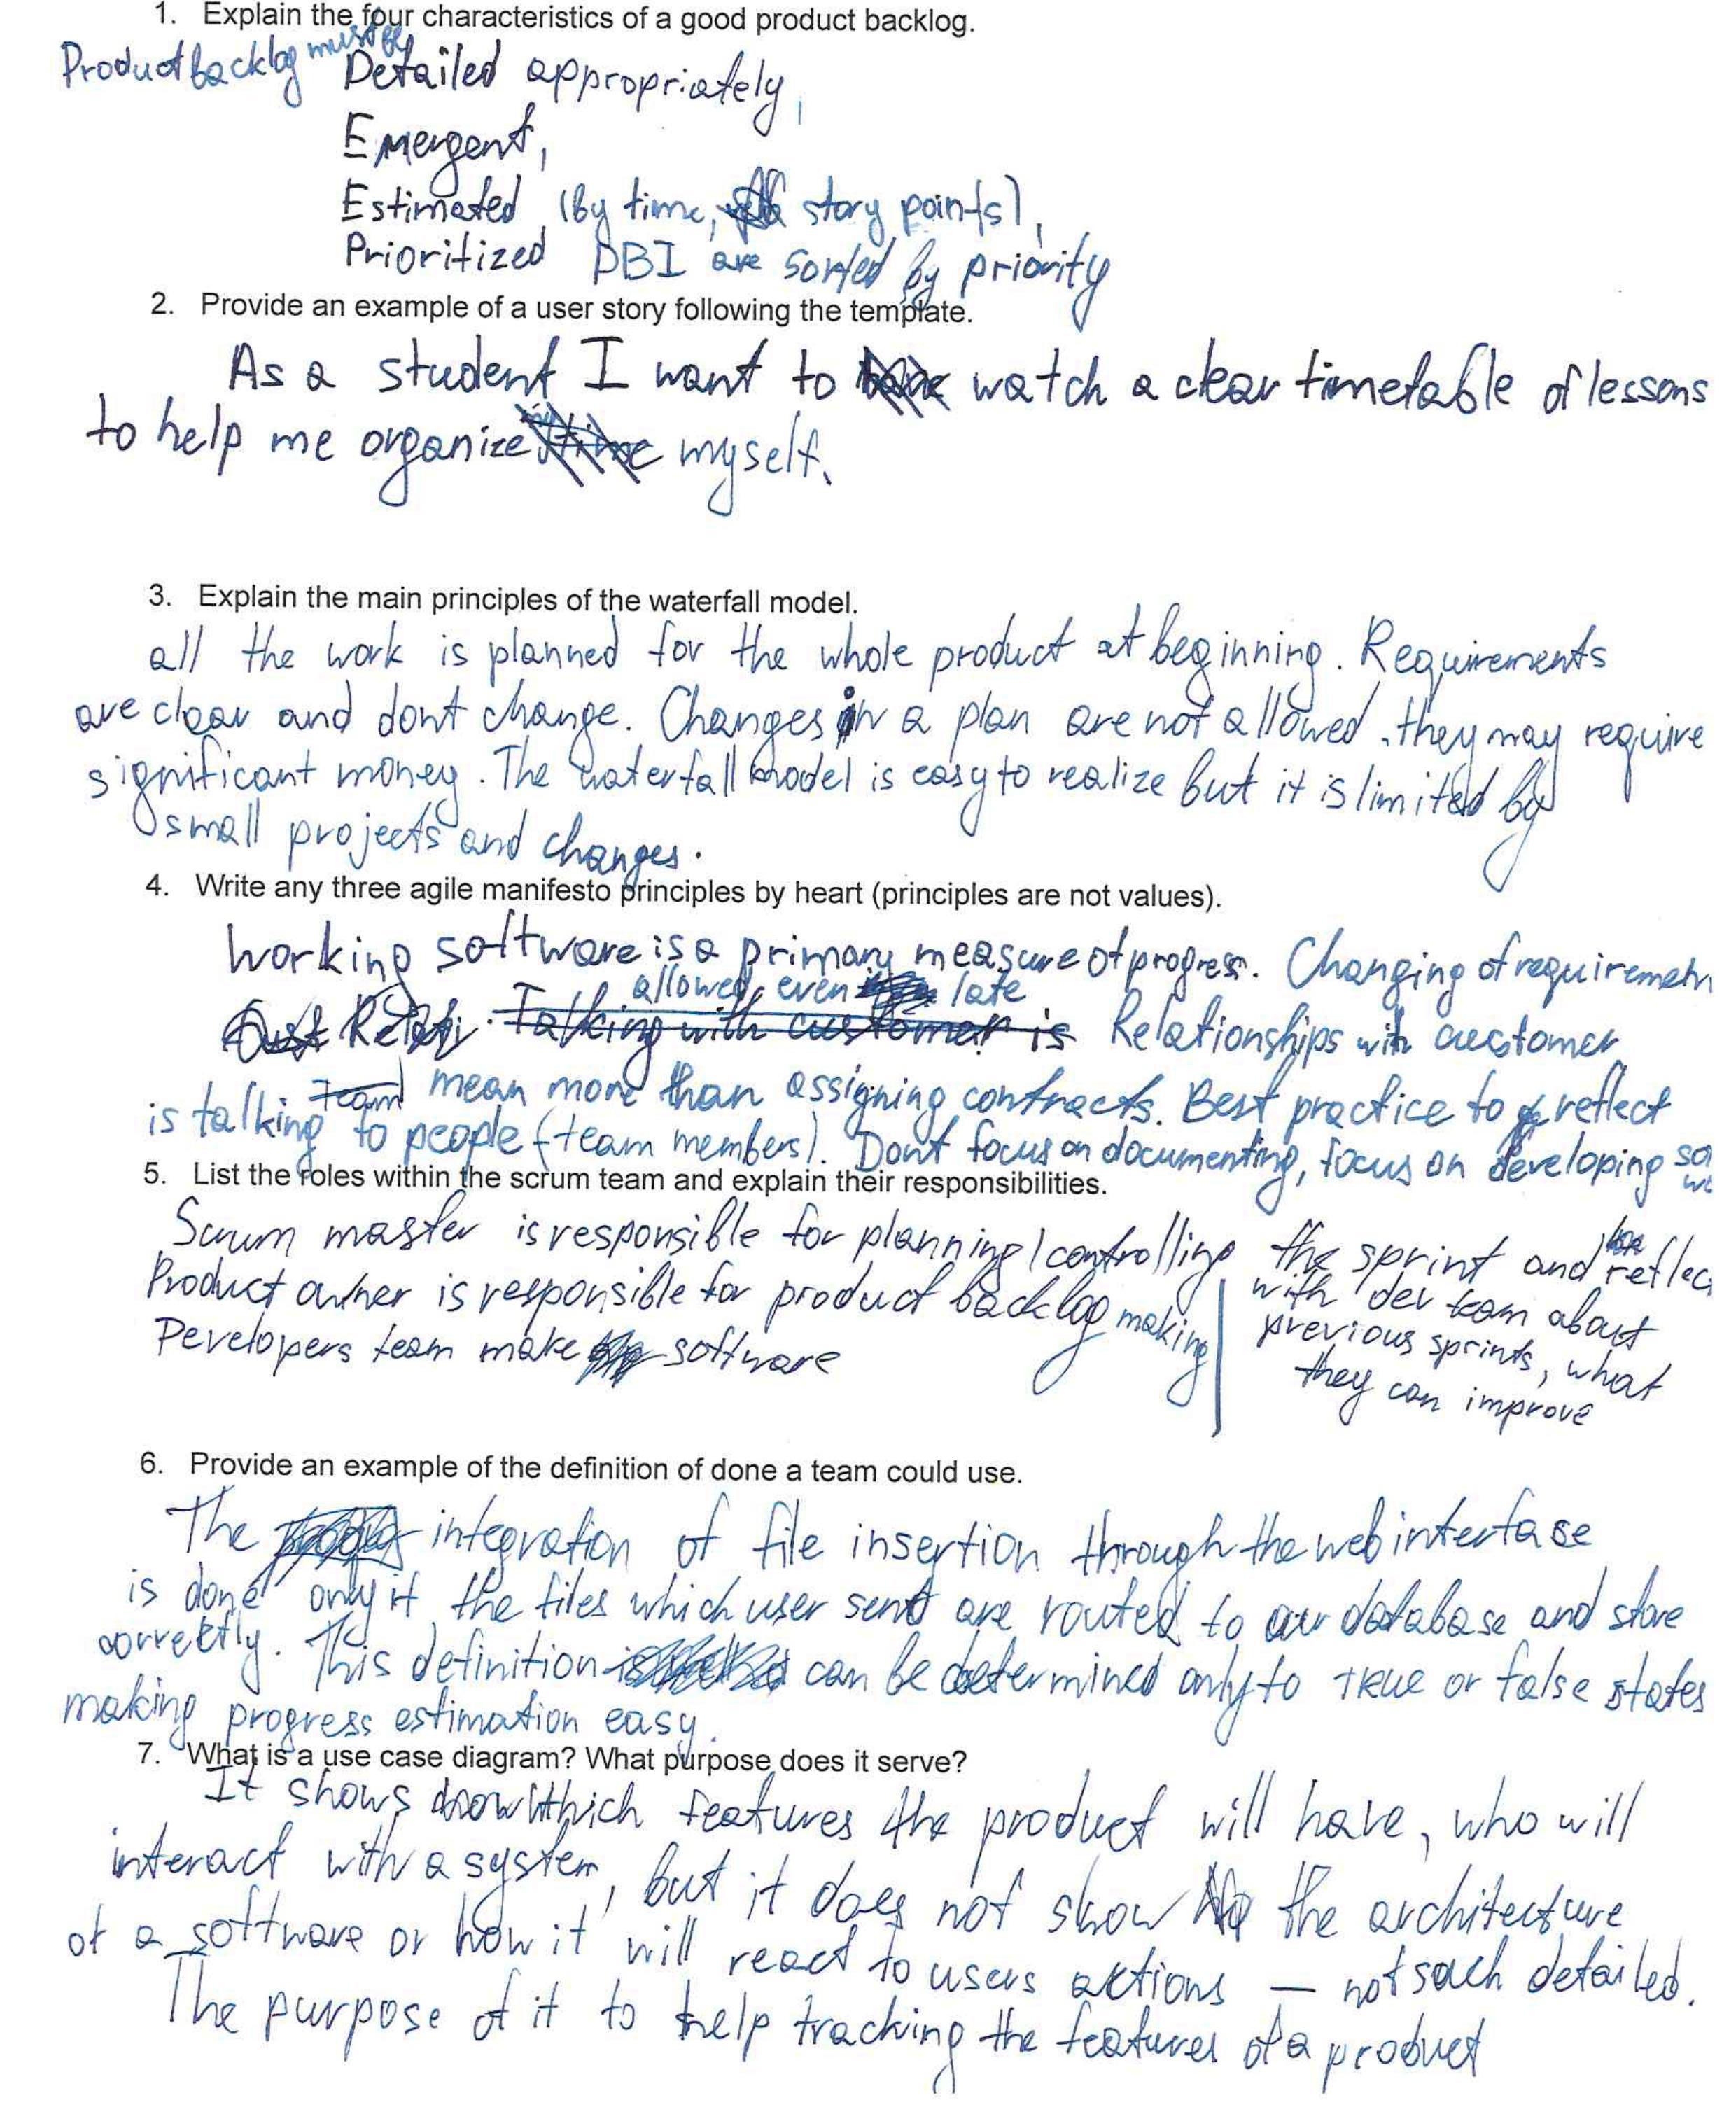 1. Explain the four characteristics of a good product backlog.
Product backlog must be Detailed appropriately,
Emergent,
Estimated (by time, story points),
Prioritized PBI are sorted by priority
2. Provide an example of a user story following the template.
As a student I want to watch a clear timetable of lessons
to help me organize myself.
3. Explain the main principles of the waterfall model.
all the work is planned for the whole product at beginning. Requirements
are clear and dont change. Changes in a plan are not allowed, they may require
significant money. The waterfall model is easy to realize but it is limited by
small projects and changes.
4. Write any three agile manifesto principles by heart (principles are not values).
Working software is a primary measure of progress. Changing of requirements
allowed, even late
Talking with customer is Relationships with customer
mean more than assigning contracts. Best practice to reflect
is talking to people (team members). Dont focus on documenting, focus on developing
5. List the roles within the scrum team and explain their responsibilities.
Scrum master is responsible for planning/controlling the sprint and reflec
with dev team about
previous sprints, what
they can improve
Product owner is responsible for product backlog making
Developers team make software
6. Provide an example of the definition of done a team could use.
The integration of file insertion through the web interfase
is done only if the files which user sent are routed to our database and store
correctly. This definition can be determined only to true or false states
making progress estimation easy.
7. What is a use case diagram? What purpose does it serve?
It shows which features the product will have, who will
interact with a system, but it does not show the architecture
of a software or how it will react to users aktions — not such detailed.
The purpose of it to help tracking the features of a product